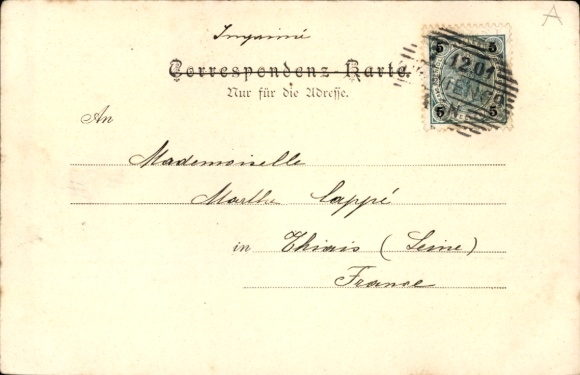 A
Imprimé
5 5
Correspondenz-Karte.
12.01
Nur für die Adresse.
5 5
An
Mademoiselle
Marthe Cappé
in Thiais (Seine)
France